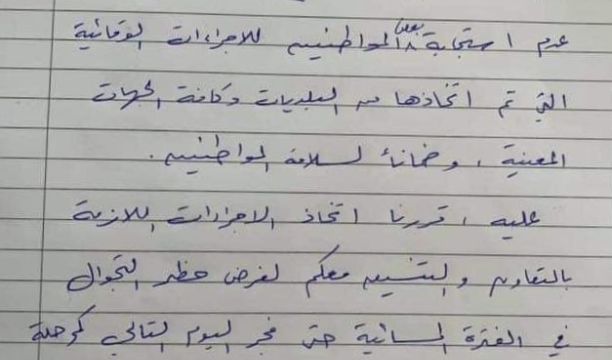 عدم استجابة بعض المواطنين للاجراءات الوقائية
التي تم اتخاذها من البلديات وكافة الجهات
المعنية، وضماناً لسلامة المواطنين.
عليه، قررنا اتخاذ الاجراءات اللازمة
بالتعاون والتنسيق معكم لفرض حظر التجوال
في الفترة المسائية حتى فجر اليوم التالي كمرحلة